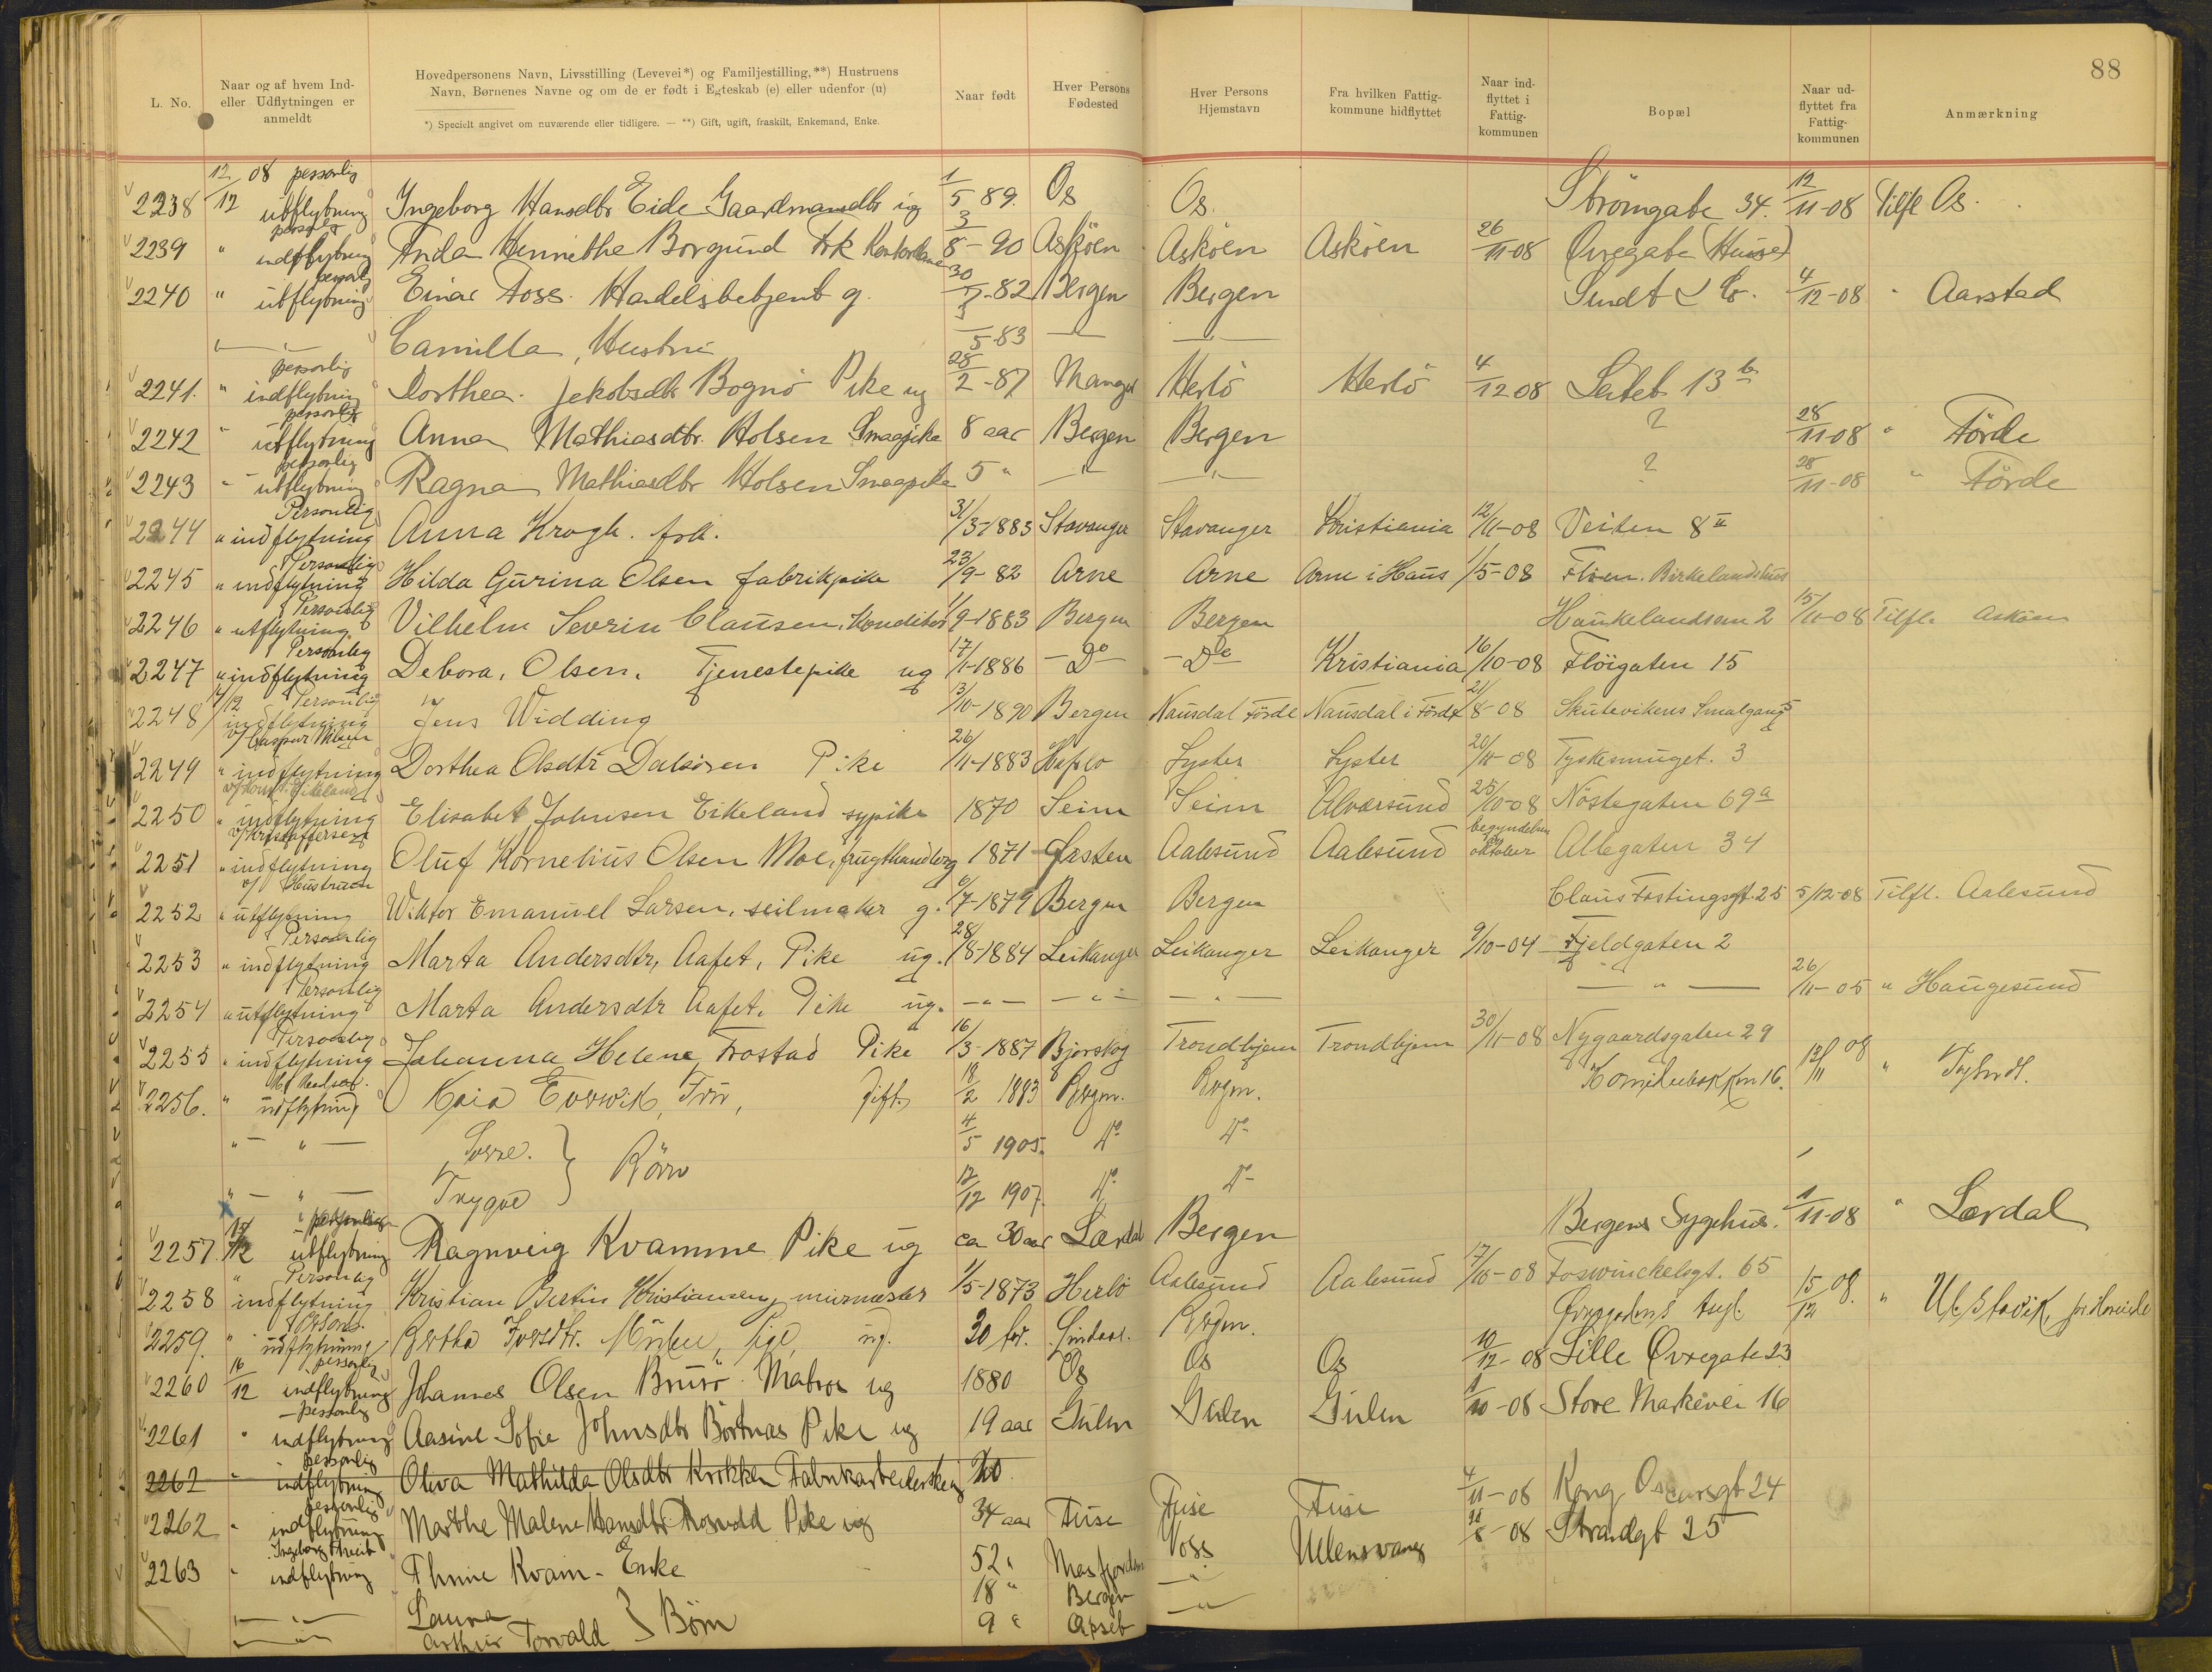 88
L. No. Naar og af hvem Ind- eller Udflytningen er anmeldt Hovedpersonens Navn, Livsstilling (Levevei*) og Familjestilling,**) Hustruens Navn, Børnenes Navne og om de er født i Egteskab (e) eller udenfor (u) Naar født Hver Persons Fødested Hver Persons Hjemstavn Fra hvilken Fattig- kommune hidflyttet Naar ind- flyttet i Fattig- kommunen Bopæl Naar ud- flyttet fra Fattig- kommunen Anmærkning
*) Specielt angivet om nuværende eller tidligere. — **) Gift, ugift, fraskilt, Enkemand, Enke.
2238 12/12 08 personlig utflytning Ingeborg Hansdtr Eide Gaardmandsdtr ug 1/5 89. Os Os. Strömgate 34. 12/11-08 Tilfl Os.
2239 " personlig indflytning Anda Henriethe Borgund Frk 3/8-90 Asköen Asköen Asköen 26/11-08 Øvregate
2240 " personlig utflytning Einar Foss. Handelsbetjent g. 30/7-82 Bergen Bergen Sundt & Co. 4/12-08 " Aarstad
— " — Camilla, Hustru 3/5-83 — " — — " —
2241. " personlig indflytning Dorthea Jakobsdtr Bognö Pike ug 28/2-87 Manger Herlö Herlö 4/12 08 13 b
2242 " personlig utflytning Anna Mathiasdtr. Holsen Smaapike 8 aar Bergen Bergen ? 28/11-08 " Förde
2243 " personlig utflytning Ragna Mathiasdtr Holsen Smaapike 5 " — " — — " — ? 28/11-08 " Förde
2244 Personlig " indflytning Anna Krogh. frk. 31/3-1883 Stavanger Stavanger Kristiania 12/11-08 Veiten 8 II
2245 Personlig " indflytning Hilda Gurina Olsen fabrikpike 23/9-82 Arne Arne Arne i Haus 1/5-08 Birkelandshus
2246 Personlig " utflytning Vilhelm Sevrin Clausen, Konditor 1/9-1883 Bergen Bergen Haukelandsvn 2 15/11-08 Tilfl. Asköen
2247 Personlig " indflytning Debora, Olsen, Tjenestepike ug 17/11-1886 - Do - - Do - Kristiania 16/10-08 Flöigaten 15
2248 14/12 Personlig indflytning Jens Widding 3/10-1890 Bergen Nausdal Förde Nausdal i Förde 21/8-08 Skutevikens Smalgang 5
2249 " indflytning Dorthea Olsdtr Dalsören Pike 26/11-1883 Hafslo Lyster Lyster 20/11-08 Tyskesmuget. 3
2250 " indflytning Elisabet Johnsen Eikeland sypike 1870 Seim Seim Alversund 25/10-08 Nöstegaten 69 a
2251 v/ Kristoffersen " indflytning Oluf Kornelius Olsen Moe, frugthandler g 1871 Aalesund Aalesund begyndelsen oktober Allegaten 34
2252 v/ Hustruen " utflytning Wiktor Emanuel Larsen, seilmaker g. 6/7-1879 Bergen Bergen Claus Fastingsgt. 25 5/12-08 Tilfl. Aalesund
2253 Personlig " indflytning Marta Andersdtr, Aafet, Pike ug. 28/8-1884 Leikanger Leikanger Leikanger 9/10-04 Fjeldgaten 2
2254 Personlig " utflytning Marta Andersdtr Aafet. Pike ug. - " - - " - - " - — " — 26/11-05 " Haugesund
2255 Personlig " indflytning Johanna Helene Frostad Pike 16/3-1887 Trondhjem Trondhjem 30/11-08 Nygaardsgaten 29
2256. " udflytning Kaia Frü, Gift. 18/2 1883 Bergen. Bergen. 16. 12/11 08 "
" — " — Sverre. } Börn 4/5 1905. Do Do
" — " — Trygve 12/12 1907. Do Do
2257. personlig utflytning Ragnveig Kvamme Pike ug ca 30 aar Lærdal Bergen Bergens Sygehus. 1/11-08 " Lærdal
2258 " Personlig indflytning Kristian Bertin Kristiansen, murmester 1/5-1873 Herlö Aalesund Aalesund 17/10-08 Foswinckelsgt. 65
2259. Person. " udflytning Bertha Iversdtr. ug. Bergen. 15/12 08. "
2260 16/12 personlig indflytning Johannes Olsen Matros ug 1880 Os Os Os 10/12-08 Lille Øvregate 23
2261 personlig " indflytning Aasine Sofie Johnsdtr Börtnæs Pike ug 19 aar Gulen Gulen Gulen 1/10-08 Store Markevei 16
2262 personlig " indflytning Oliva Mathilda Olsdtr Krokken Fabrikarbeiderske ug 20
2262 personlig " indflytning Marthe Malene Hansdtr Pike ug 34 aar Fuse Fuse Fuse 4/11-08 Kong Oscarsgt 24
2263 Ingeborg " indflytning Kvam - Enke 52 " Masfjorden Voss Ullensvang 8-08 Strandgt 25
— " — Laura } Börn 18 " Bergen — " —
— " — Arthur Torvald 9 " — " —